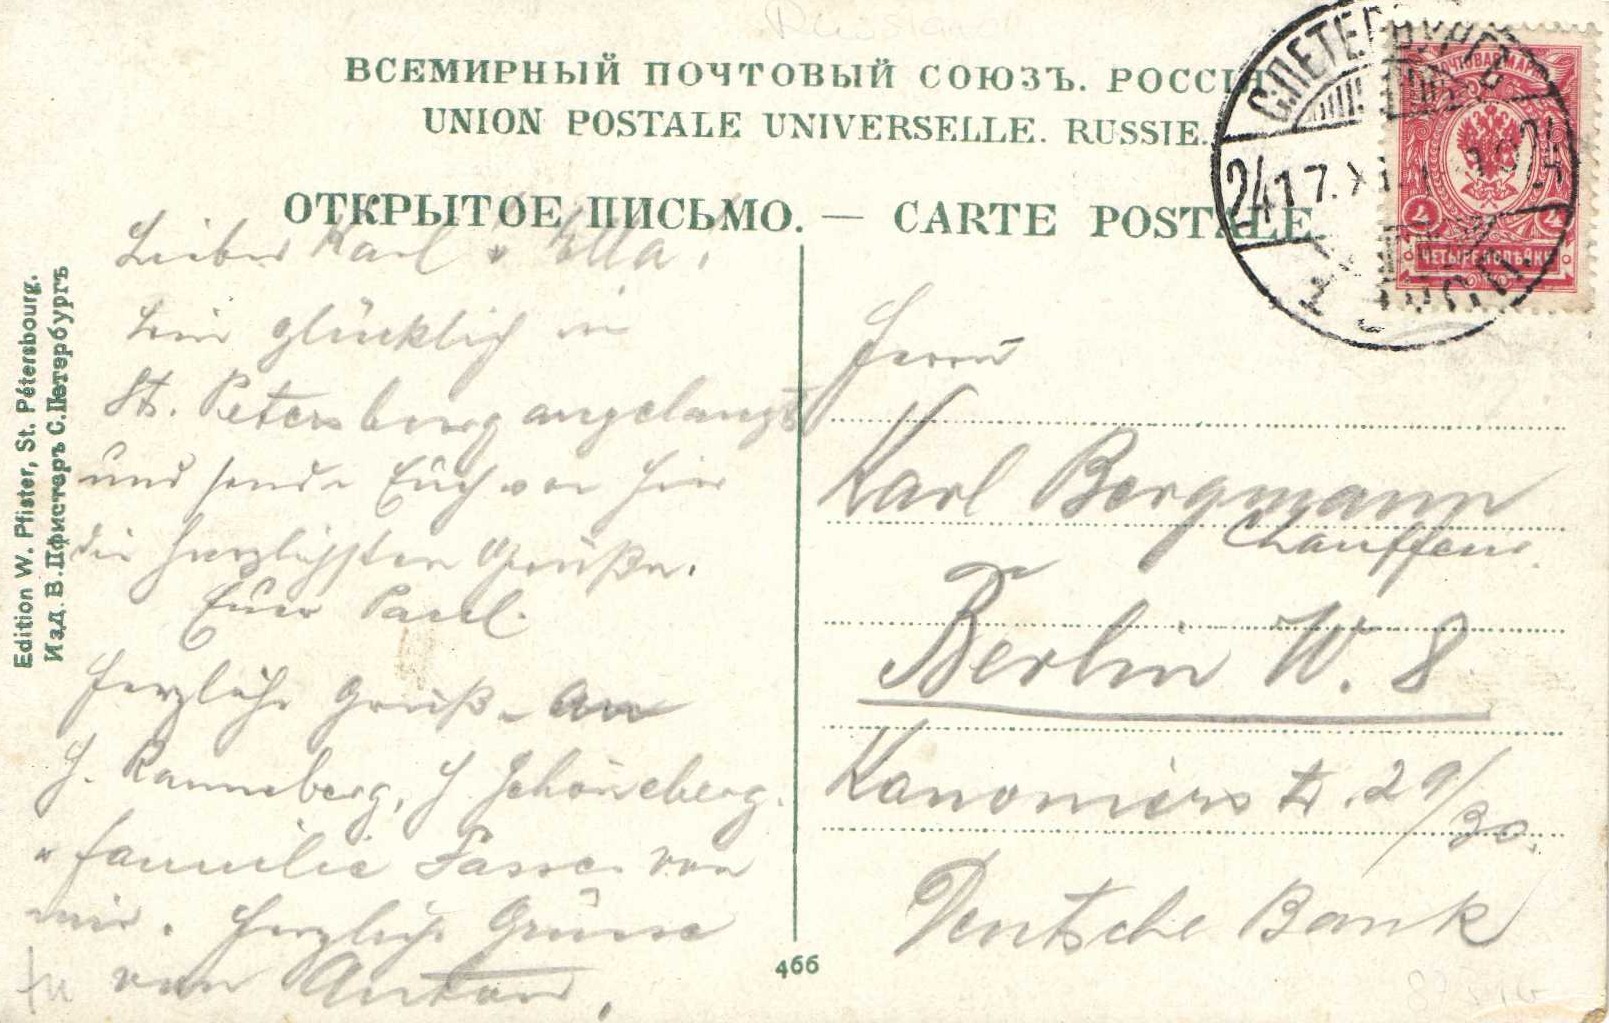 ВСЕМИРНЫЙ ПОЧТОВЫЙ СОЮЗЪ. РОССІЯ
UNION POSTALE UNIVERSELLE. RUSSIE.
ОТКРЫТОЕ ПИСЬМО. — CARTE POSTALE.
С.ПЕТЕРБУРГЪ
ПОЧТОВАЯ МАРКА
4 4
ЧЕТЫРЕ КОПѢЙКИ
Edition W. Pfister, St. Pétersbourg.
Изд. В. Пфистеръ С.Петербургъ
Lieber Karl u Ella,
bin glücklich in
St. Petersburg angelangt
und sende Euch von hier
die herzlichsten Grüße.
Euer Paul.
Herzliche Grüße an
H. Ranneberg, H. Schöneberg.
u familie Sasse von
mir. Herzliche Grüsse
von Anton.
Herrn
Karl Bergmann
Chauffeur.
Berlin W. 8
Kanonierstr. 29/30.
Deutsche Bank
466